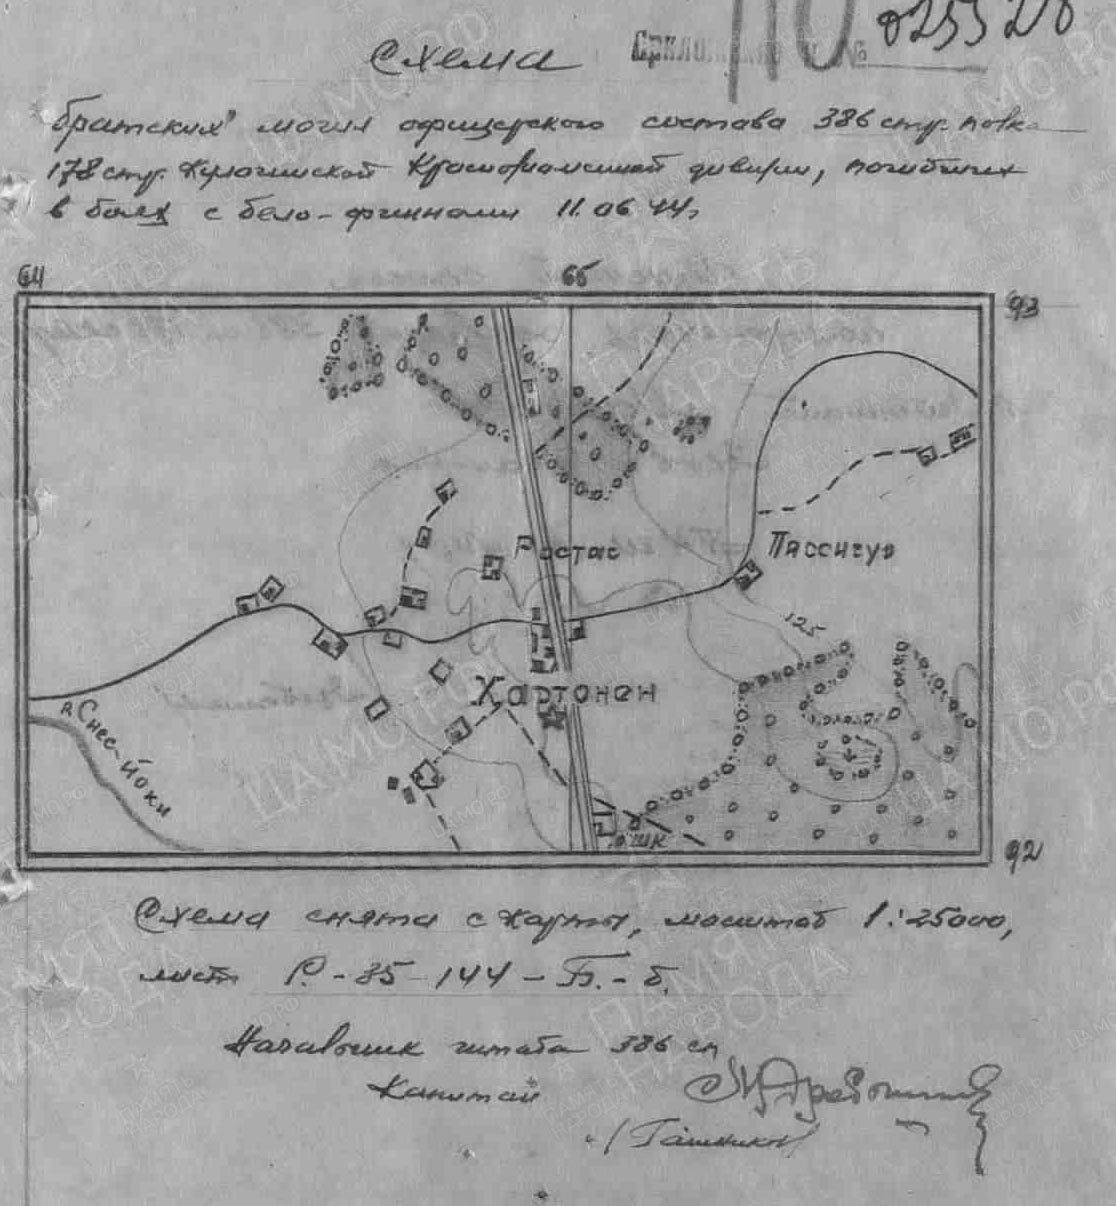 Схема
025528
братских могил офицерского состава 386 стр. полка
178 стр. Кулагинской Краснознаменной дивизии, погибших
в боях с бело-финнами 11.06.44г.
64 66 93
Ростас Пассигуя
125
Хартонен
р. Снес-йоки
шк
92
Схема снята с карты, масштаб 1:25000,
лист Р.-35-144-Б.-б.
Начальник штаба 386 сп
Капитан